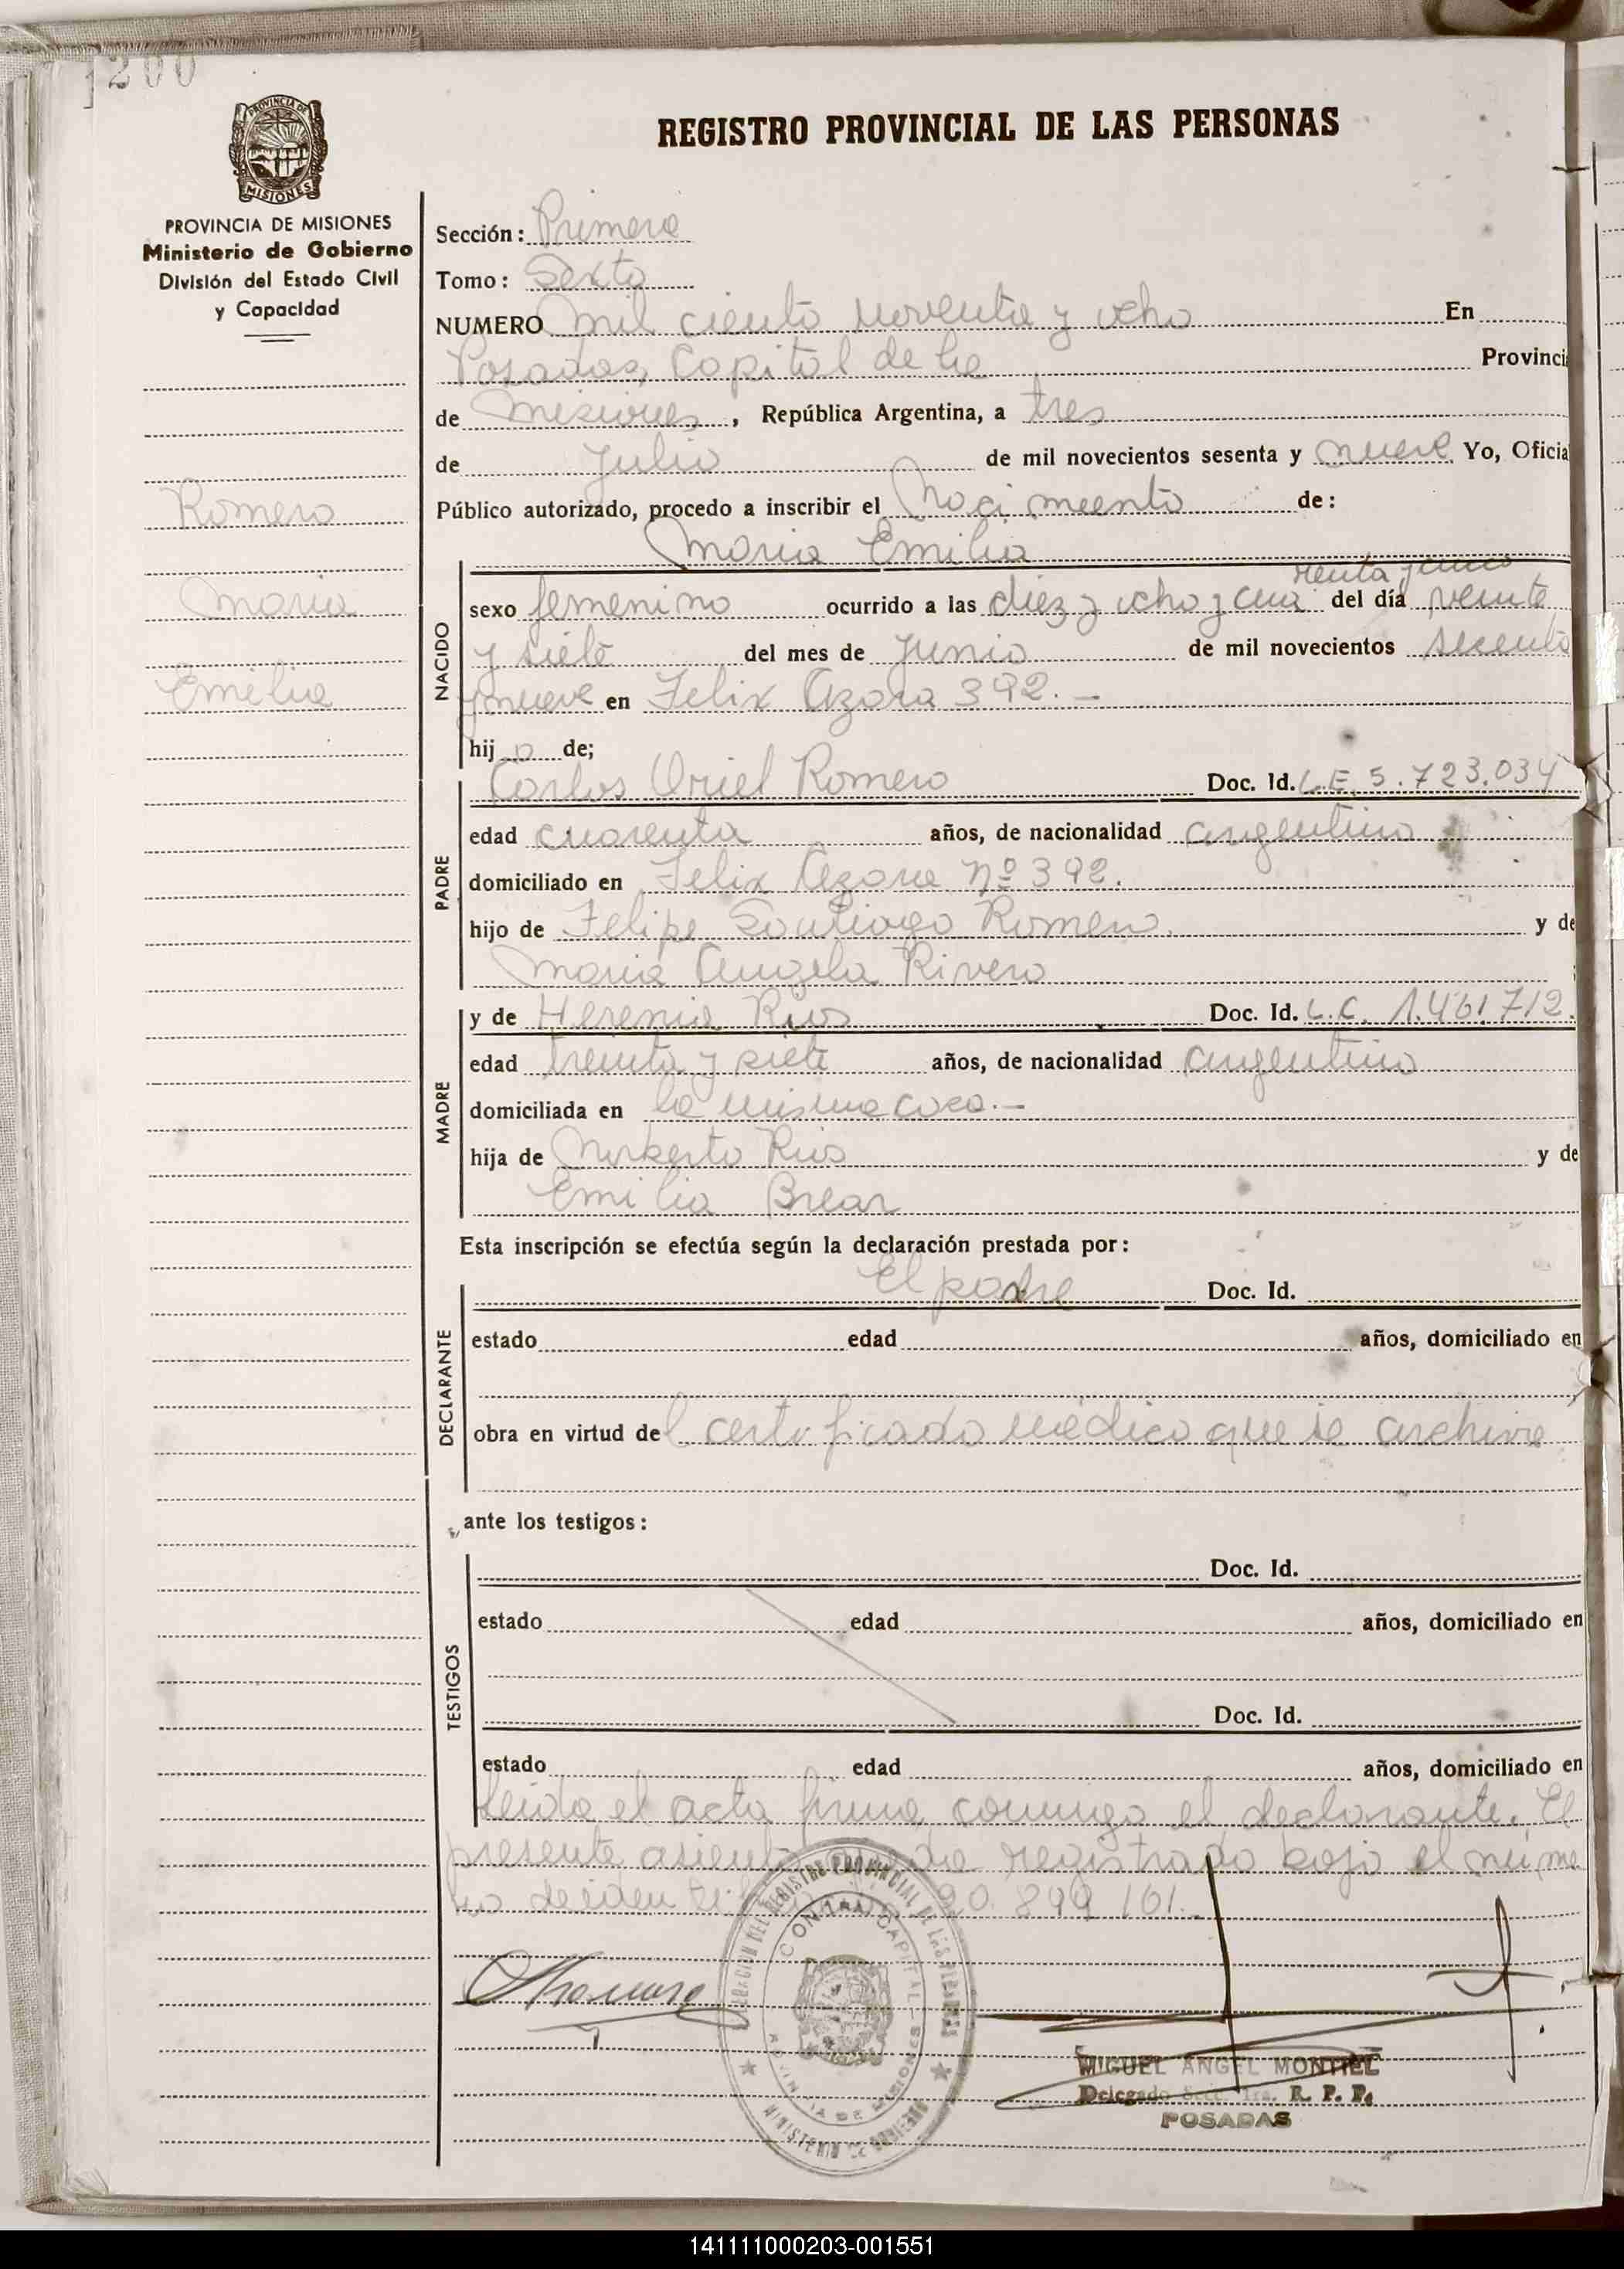 1200
PROVINCIA DE MISIONES
MISIONES
PROVINCIA DE MISIONES
Ministerio de Gobierno
División del Estado Civil
y Capacidad
Romero
Maria
Emilia
REGISTRO PROVINCIAL DE LAS PERSONAS
Sección: Primera
Tomo: Sexto
NUMERO Mil ciento noventa y ocho En
Posadas, Capital de la Provinci
de Misiones, República Argentina, a tres
de Julio de mil novecientos sesenta y nueve Yo, Oficia
Público autorizado, procedo a inscribir el Nacimiento de:
Maria Emilia
NACIDO
renta y cinco
sexo femenino ocurrido a las diez y ocho y cua del día veinte
y siete del mes de Junio de mil novecientos sesenta
y nueve en Felix Azara 392.-
hij a de;
PADRE
Carlos Oriel Romero Doc. Id. L.E. 5.723.034
edad cuarenta años, de nacionalidad argentino
domiciliado en Felix Azara Nº 392.
hijo de Felipe Santiago Romero, y de
Maria Angela Rivero
MADRE
y de Herenia Rios Doc. Id. L.C. 1.461.712.
edad treinta y siete años, de nacionalidad argentina
domiciliada en la misma casa.-
hija de Norberto Rios y de
Emilia Brear
Esta inscripción se efectúa según la declaración prestada por:
DECLARANTE
El padre Doc. Id.
estado edad años, domiciliado en
obra en virtud del certificado médico que se archiva
ante los testigos:
TESTIGOS
Doc. Id.
estado edad años, domiciliado en
Doc. Id.
estado edad años, domiciliado en
Leida el acta firma conmigo el declarante. El
presente asiento da registrado bajo el núme
ro de iden 20.899.161.-
MIGUEL ANGEL MONTIEL
Delegado Secc. 1ra. R. P. P.
POSADAS
141111000203-001551